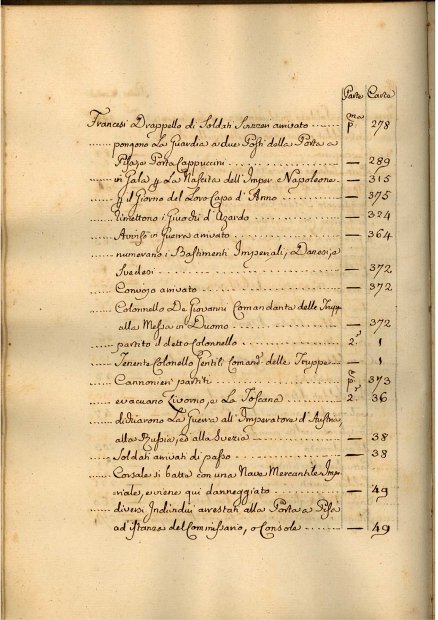 Parte Carte
Francesi Drappello di Soldati Svizzeri arrivato p.ma 278
pongono La Guardia a due Posti della Porta a
Pisa, e Porta Cappuccini — 289
in Gala p La Nascita dell'Imper.e Napoleone — 315
p il Giorno del Loro Capo d'Anno — 375
rimettono i Giuochi d'Azardo — 324
Avvisi in Guerra arrivato — 364
numerano i Bastimenti Imperiali, Danesi, e
Svedesi — 372
Convojo arrivato — 372
Colonnello De Giovanni Comandante delle Trupp
alla Messa in Duomo — 372
partito il detto Colonnello 2.a 1
Tenente Colonello Gentili Coman.e delle Truppe — 1
Cannonieri partiti p.a 373
evacuano Livorno, e La Toscana 2 36
dichiarono La Guerra all'Imperatore d'Austria,
alla Russia, ed alla Svezia — 38
Soldati arrivati di passo — 38
Corsale si batte con una Nave Mercantile Impe
riale, e viene qui danneggiato — 49
diversi Individui arrestati alla Porta a Pisa
ad'istanza del Commissario, o Console — 49